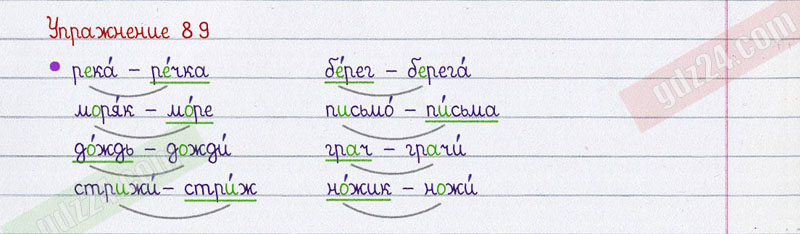 Упражнение 89
река́ – ре́чка бе́рег – берега́
моря́к – мо́ре письмо́ – пи́сьма
до́ждь – дожди́ грач – грачи́
стрижи́ – стри́ж но́жик – ножи́
gdz24.com
gdz24.com